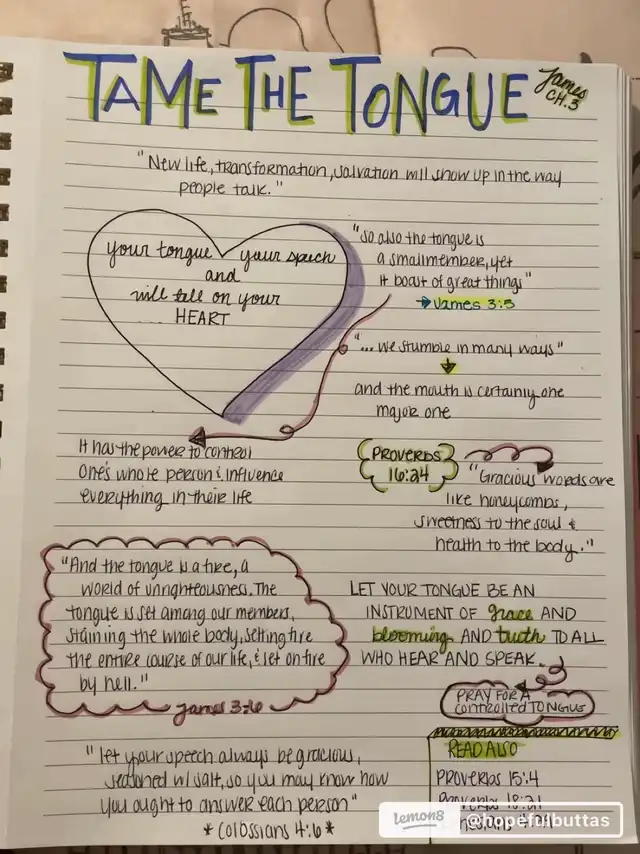 TAME THE TONGUE
James
CH.3
"New life, transformation, salvation will show up in the way
people talk."
your tongue your speech
and
will tell on your
HEART
"so also the tongue is
a small member, yet
it boast of great things"
James 3:5
"... we stumble in many ways"
and the mouth is certainly one
major one
It has the power to control
one's whole person & influence
everything in their life
PROVERBS
16:24
"Gracious words are
like honeycombs,
sweetness to the soul &
health to the body."
"And the tongue is a fire, a
world of unrighteousness. The
tongue is set among our members,
staining the whole body, setting fire
the entire course of our life, & set on fire
by hell."
James 3:6
LET YOUR TONGUE BE AN
INSTRUMENT OF grace AND
blooming AND truth TO ALL
WHO HEAR AND SPEAK.
PRAY FOR A
controlled TONGUE
"let your speech always be gracious,
seasoned w/ salt, so you may know how
you ought to answer each person"
*Colossians 4:6*
READ ALSO
PROVERBS 15:4
Proverbs 18:21
lemon8 @hopefulbuttas